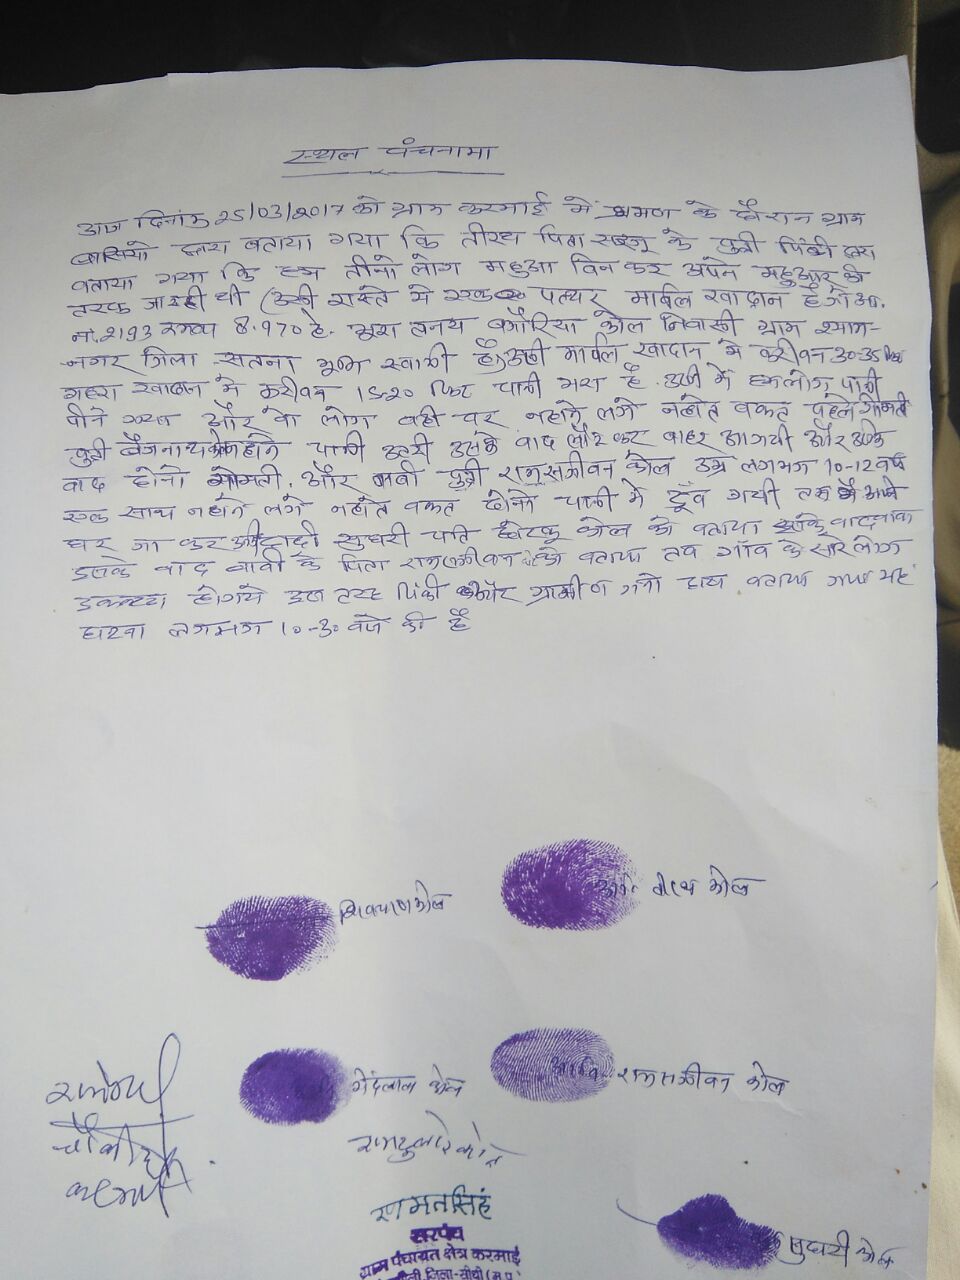 स्थल पंचनामा
आज दिनांक 25/03/2017 को ग्राम करमाई में भ्रमण के दौरान ग्राम
वासियो द्वारा बताया गया कि तीरथ पिता के पुत्री पिंकी द्वारा
बताया गया कि हम तीनो लोग महुआ विन कर अपने महुआर की
तरफ जा रही थी रास्ते में पत्थर मार्वल खादान है आ.
न. 2193 रकवा 8.970 है. तनय कोल निवासी ग्राम श्याम-
नगर जिला सतना भूमि स्वामी है मार्वल खादान में करीवन 30-35 फिट
गहरा खादान में करीवन 15-20 फिट पानी भरा है. उसी में हम लोग पानी
पीने गया और वो लोग वही पर नहाने लगे नहाते वक्त पहले गोमती
पुत्री बैजनाथ पानी उतरी उसके बाद लौट कर बाहर आ गयी और उसके
बाद दोनो गोमती और पुत्री रामसजीवन कोल उम्र लगभग 10-12 वर्ष
एक साथ नहाने लगे नहाते वक्त दोनो पानी में डूँव गयी
घर जा कर दादी सुघरी पति छोटकू कोल को बताया
उसके बाद के पिता रामसजीवन को बताया तव गाँव के सारे लोग
इकठ्ठा होगये इस तरह पिंकी और ग्रामीण जनो द्वारा बताया गया यह
घटना लगभग 10-30 वजे की है
कोल
तीरथ कोल
गेंदलाल कोल
रामसजीवन कोल
रामदुलारे कोल
रनमतसिहं
सरपंच
ग्राम पंचायत क्षेत्र करमाई
जिला-सीधी (म.प्र.
सुघरी कोल